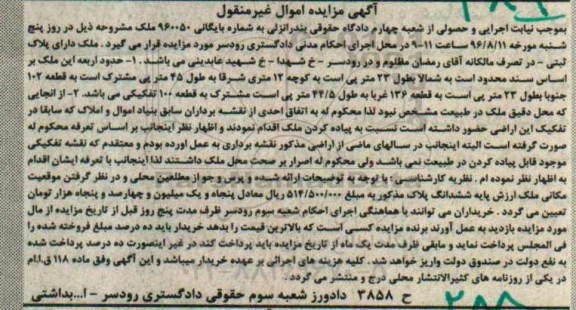 آگهی مزایده اموال غیرمنقول
بموجب نیابت اجرایی و حصولی از شعبه چهارم دادگاه حقوقی بندرانزلی به شماره بایگانی ۹۶۰۰۵۰ ملک مشروحه ذیل در روز پنج
شنبه مورخه ۹۶/۸/۱۱ ساعت ۱۱-۹ در محل اجرای احکام مدنی دادگستری رودسر مورد مزایده قرار می گیرد . ملک دارای پلاک
ثبتی - در تصرف مالکانه آقای رمضان مظلوم و در رودسر - خ شهدا - خ شهید عابدینی می باشد. ۱- حدود اربعه این ملک بر
اساس سند محدود است به شمالا بطول ۲۳ متر پی است به کوچه ۱۲ متری شرقا به طول ۴۵ متر پی مشترک است به قطعه ۱۰۲
جنوبا بطول ۲۳ متر پی است به قطعه ۱۳۶ غربا به طول ۴۴/۵ متر پی است مشترک به قطعه ۱۰۰ تفکیکی می باشد. ۲- از انجایی
که محل دقیق ملک در طبیعت مشخص نبود لذا محکوم له به اتفاق احدی از نقشه برداران سابق بنیاد اموال و املاک که سابقا در
تفکیک این اراضی حضور داشته است نسبت به پیاده کردن ملک اقدام نمودند و اظهار نظر اینجانب بر اساس تعرفه محکوم له
صورت گرفته است البته اینجانب در سالهای ماضی از اراضی مذکور نقشه برداری به عمل اورده بودم و معتقدم که نقشه تفکیکی
موجود قابل پیاده کردن در طبیعت نمی باشد ولی محکوم له اصرار بر صحت محل ملک داشتند لذا اینجانب با تعرفه ایشان اقدام
به اظهار نظر نموده ام . نظریه کارشناسی : با توجه به توضیحات ارائه شده و پرس و جو از مطلعین محلی و در نظر گرفتن موقعیت
مکانی ملک ارزش پایه ششدانگ پلاک مذکور به مبلغ ۵۱۴/۵۰۰/۰۰۰ ریال معادل پنجاه و یک میلیون و چهارصد و پنجاه هزار تومان
تعیین می گردد . خریداران می توانند با هماهنگی اجرای احکام شعبه سوم رودسر ظرف مدت پنج روز قبل از تاریخ مزایده از مال
مورد مزایده بازدید به عمل آورند برنده مزایده کسی است که بالاترین قیمت را بدهد خریدار باید ده درصد مبلغ فروخته شده را
فی المجلس پرداخت نماید و مابقی ظرف مدت یک ماه از تاریخ مزایده باید پرداخت کند در غیر اینصورت ده درصد پرداخت شده
به نفع دولت در صندوق دولت واریز خواهد شد . کلیه هزینه های اجرائی بر عهده خریدار میباشد و این آگهی وفق ماده ۱۱۸ ق.ا.ا.م
در یکی از روزنامه های کثیرالانتشار محلی درج و منتشر می گردد .
ح ۳۸۵۸ دادورز شعبه سوم حقوقی دادگستری رودسر - ا...بداشتی